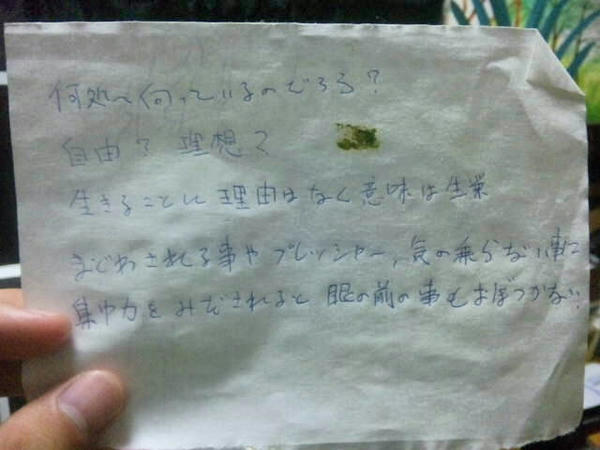 何処へ向っているのだろう?
自由? 理想?
生きることに理由はなく意味は生栄
まどわされる事やプレッシャー,気の乗らない事に
集中力をみだされると眼の前の事もおぼつかない